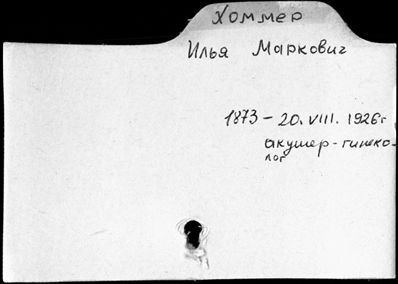 Хоммер
Илья Маркович
1873 - 20. VIII. 1926г
акушер-гинеко-
лог